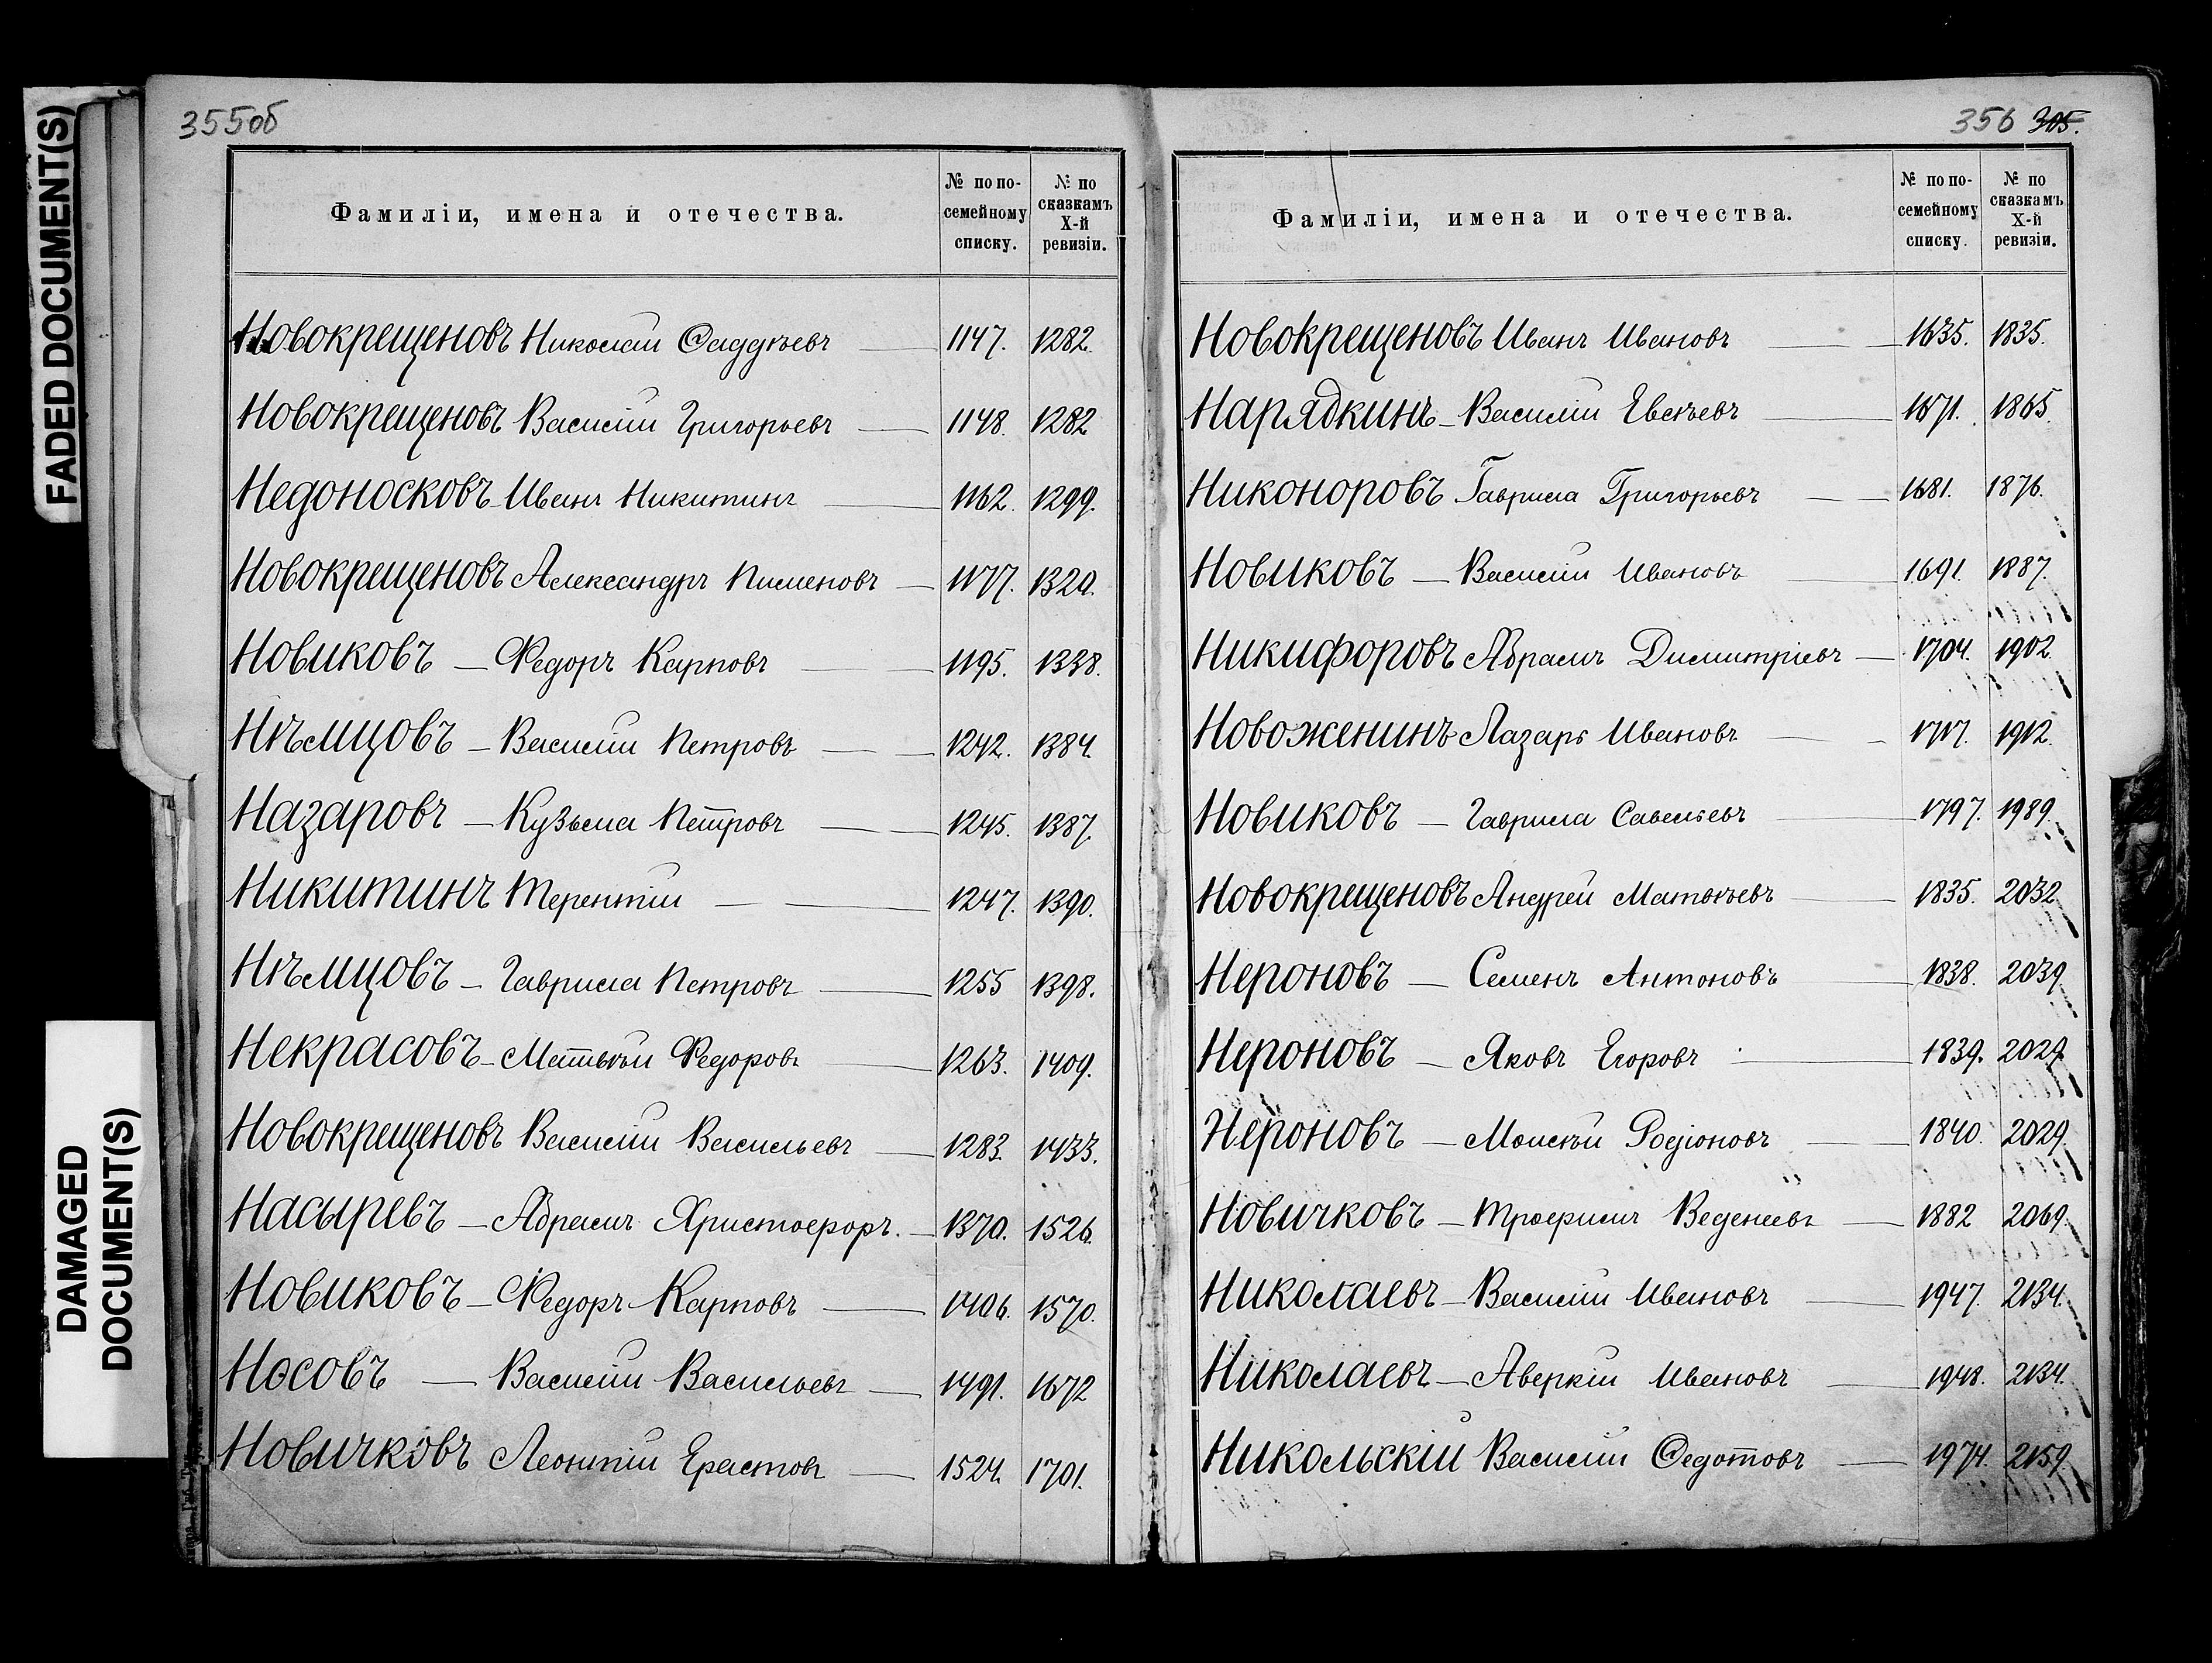 FADED DOCUMENT(S)
DAMAGED
DOCUMENT(S)
355об
Фамиліи, имена и отечества.
№ по по-
семейному
списку.
№ по
сказкамъ
X-й
ревизіи.
Новокрещеновъ Николай Фаддѣевъ 1147. 1282.
Новокрещеновъ Василій Григорьевъ 1148. 1282
Недоносковъ Иванъ Никитинъ 1162. 1299.
Новокрещеновъ Александръ Пименовъ 1177. 1320.
Новиковъ — Федоръ Карповъ 1195. 1338.
Нѣмцовъ — Василій Петровъ 1242. 1384.
Назаровъ — Кузьма Петровъ 1245. 1387.
Никитинъ Терентій 1247. 1390.
Нѣмцовъ — Гаврила Петровъ 1255 1398.
Некрасовъ — Матвѣй Федоровъ 1263. 1409.
Новокрещеновъ Василій Васильевъ 1283. 1433.
Насыревъ — Абрамъ Христофоръ. 1370. 1526.
Новиковъ — Федоръ Карповъ 1406. 1570.
Носовъ — Василій Васильевъ 1491. 1672
Новичковъ Леонтій Ерастовъ 1524. 1701.
356 305.
Фамиліи, имена и отечества.
№ по по-
семейному
списку.
№ по
сказкамъ
X-й
ревизіи.
Новокрещеновъ Иванъ Ивановъ 1635. 1835.
Нарядкинъ — Василій Евсѣевъ 1671. 1865.
Никоноровъ Гаврила Григорьевъ 1681. 1876.
Новиковъ — Василій Ивановъ 1691. 1887.
Никифоровъ Абрамъ Димитріевъ 1704. 1902.
Новоженинъ Лазарь Ивановъ 1717. 1912.
Новиковъ — Гаврила Савельевъ 1797. 1989.
Новокрещеновъ Андрей Матвѣевъ 1835. 2032.
Нероновъ — Семенъ Антоновъ 1838. 2039.
Нероновъ — Яковъ Егоровъ 1839. 2029.
Нероновъ — Моисѣй Родіоновъ 1840. 2029.
Новичковъ — Трофимъ Веденеевъ 1882 2069.
Николаевъ — Василій Ивановъ 1947. 2134.
Николаевъ — Аверкій Ивановъ 1948. 2134.
Никольскій Василій Федотовъ 1974. 2159.